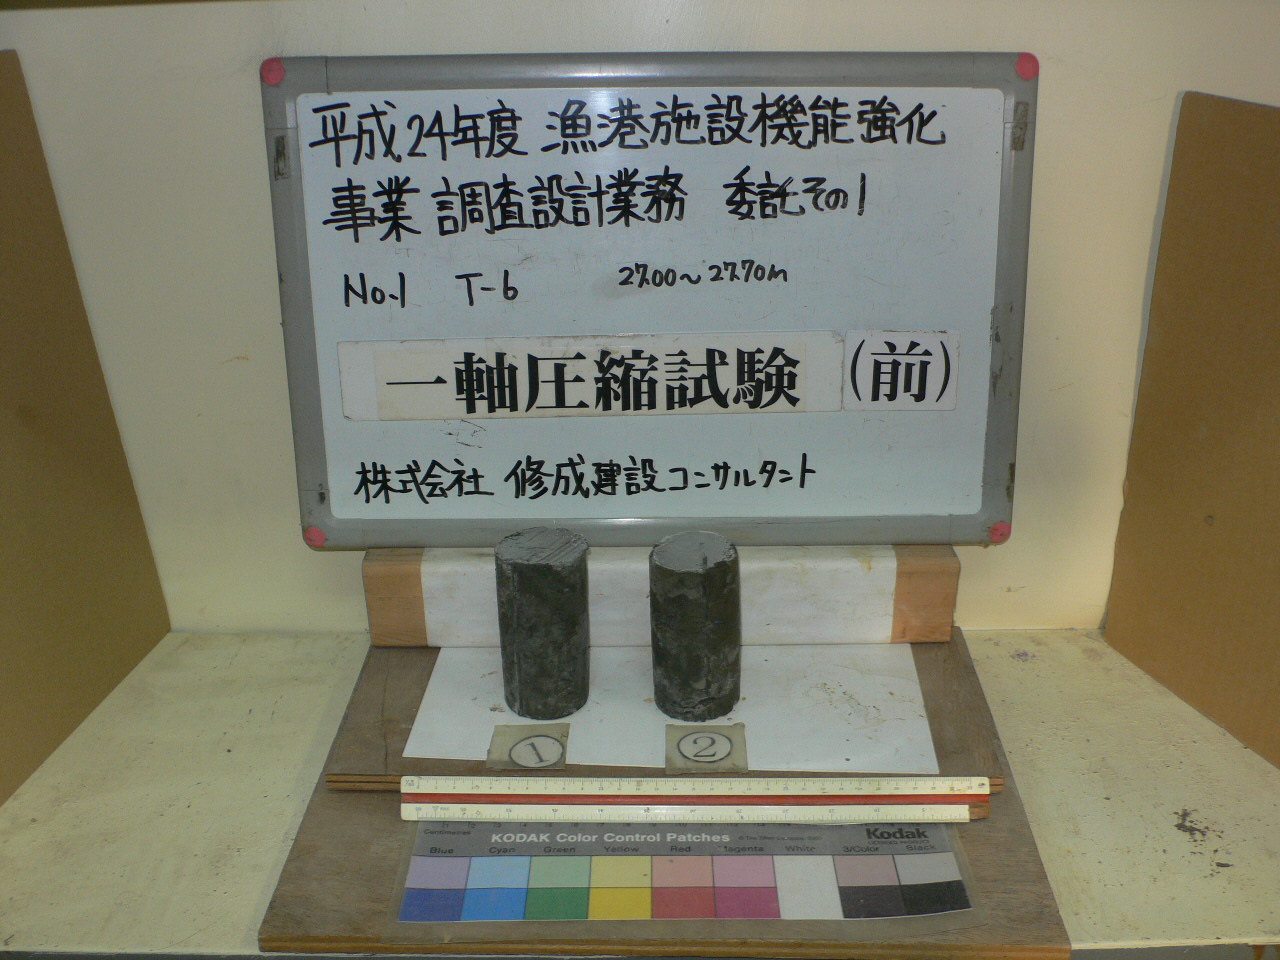 平成24年度 漁港施設機能強化
事業 調査設計業務 委託その1
No.1 T-6 27.00～27.70m
一軸圧縮試験(前)
株式会社 修成建設コンサルタント
① ②
KODAK Color Control Patches
Kodak
Centimetres
Blue Cyan Green Yellow Red Magenta White 3/Color Black